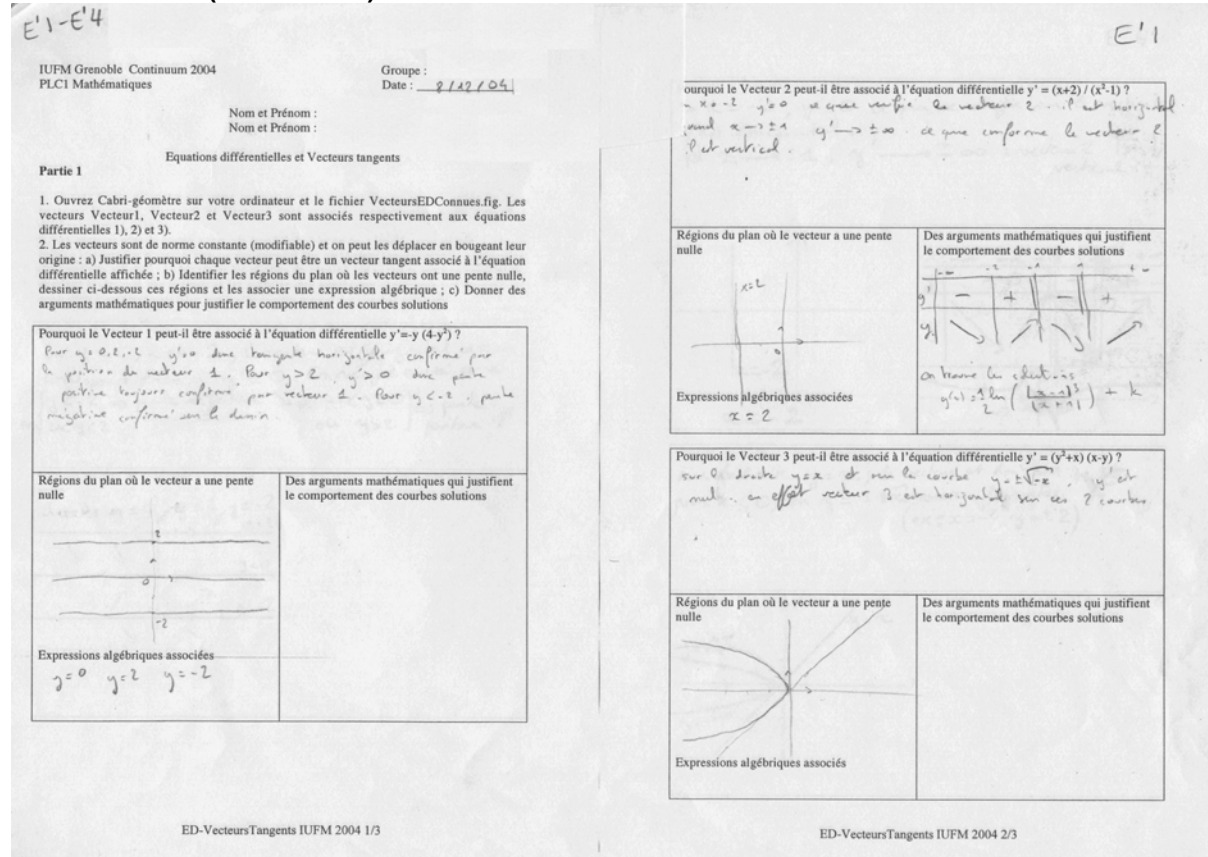 E'1-E'4
IUFM Grenoble Continuum 2004
PLC1 Mathématiques
Groupe :
Date : 8/12/04
Nom et Prénom :
Nom et Prénom :
Equations différentielles et Vecteurs tangents
Partie 1
1. Ouvrez Cabri-géomètre sur votre ordinateur et le fichier VecteursEDConnues.fig. Les
vecteurs Vecteur1, Vecteur2 et Vecteur3 sont associés respectivement aux équations
différentielles 1), 2) et 3).
2. Les vecteurs sont de norme constante (modifiable) et on peut les déplacer en bougeant leur
origine : a) Justifier pourquoi chaque vecteur peut être un vecteur tangent associé à l'équation
différentielle affichée ; b) Identifier les régions du plan où les vecteurs ont une pente nulle,
dessiner ci-dessous ces régions et les associer une expression algébrique ; c) Donner des
arguments mathématiques pour justifier le comportement des courbes solutions
Pourquoi le Vecteur 1 peut-il être associé à l'équation différentielle y'=-y (4-y²) ?
Pour y = 0, 2, -2 y'=0 donc tangente horizontale confirmé par
la position du vecteur 1. Pour y > 2, y' > 0 donc pente
positive toujours confirmé par vecteur 1. Pour y < -2, pente
négative confirmé sur le dessin.
Régions du plan où le vecteur a une pente
nulle
2
0
-2
Expressions algébriques associées
y = 0 y = 2 y = -2
Des arguments mathématiques qui justifient
le comportement des courbes solutions
ED-VecteursTangents IUFM 2004 1/3
E'1
ourquoi le Vecteur 2 peut-il être associé à l'équation différentielle y' = (x+2) / (x²-1) ?
x = -2 y'=0 ce que vérifie le vecteur 2. il est horizontal
x → ±1 y' → ±∞. ce que confirme le vecteur 2
il est vertical.
Régions du plan où le vecteur a une pente
nulle
x=2
0
Expressions algébriques associées
x = 2
Des arguments mathématiques qui justifient
le comportement des courbes solutions
-∞ -2 -1 1 +∞
y' - + - +
y
on trouve les solutions
y(x) = 1/2 ln (|x-1|³/|x+1|) + k
Pourquoi le Vecteur 3 peut-il être associé à l'équation différentielle y' = (y²+x) (x-y) ?
sur la droite y=x et sur la courbe y=±√-x, y' est
nul. en effet vecteur 3 est horizontal sur ces 2 courbes
Régions du plan où le vecteur a une pente
nulle
Expressions algébriques associés
Des arguments mathématiques qui justifient
le comportement des courbes solutions
ED-VecteursTangents IUFM 2004 2/3